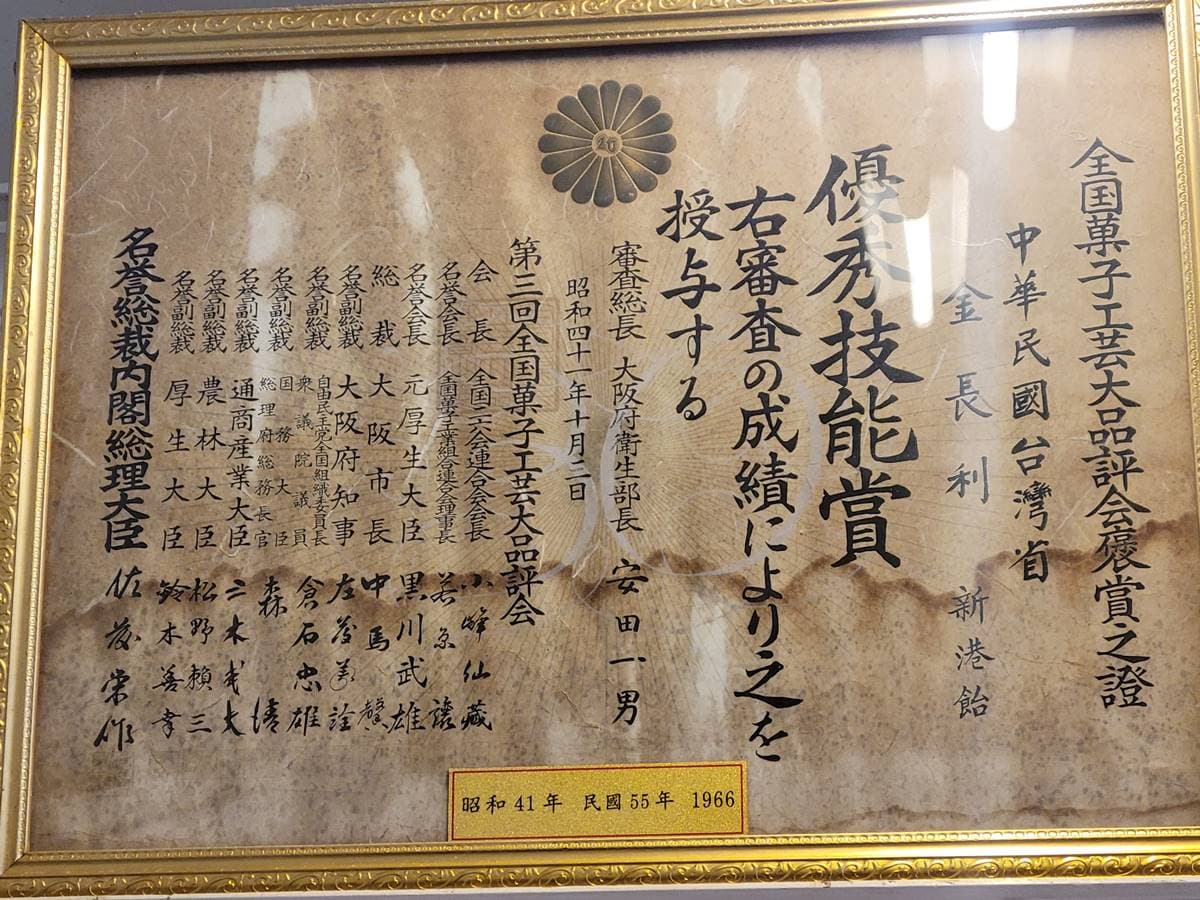 全国菓子工芸大品評会褒賞之證
中華民國台灣省
金長利 新港飴
優秀技能賞
右審査の成績により之を
授与する
審査総長 大阪府衛生部長 安田一男
昭和四十一年十月三日
第三回全国菓子工芸大品評会
会長 全国二六会連合会会長 小峰仙藏
名誉会長 全国菓子工業組合連合会理事長
名誉会長 元厚生大臣 黒川武雄
総裁 大阪市長 中馬馨
名誉副総裁 大阪府知事 左藤義詮
名誉副総裁 自由民主党全国組織委員長 衆議院議員 倉石忠雄
名誉副総裁 国務大臣 総理府総務長官 森清
名誉副総裁 通商産業大臣 三木武夫
名誉副総裁 農林大臣 松野頼三
名誉副総裁 厚生大臣 鈴木善幸
名誉総裁内閣総理大臣 佐藤栄作
昭和41年 民國55年 1966